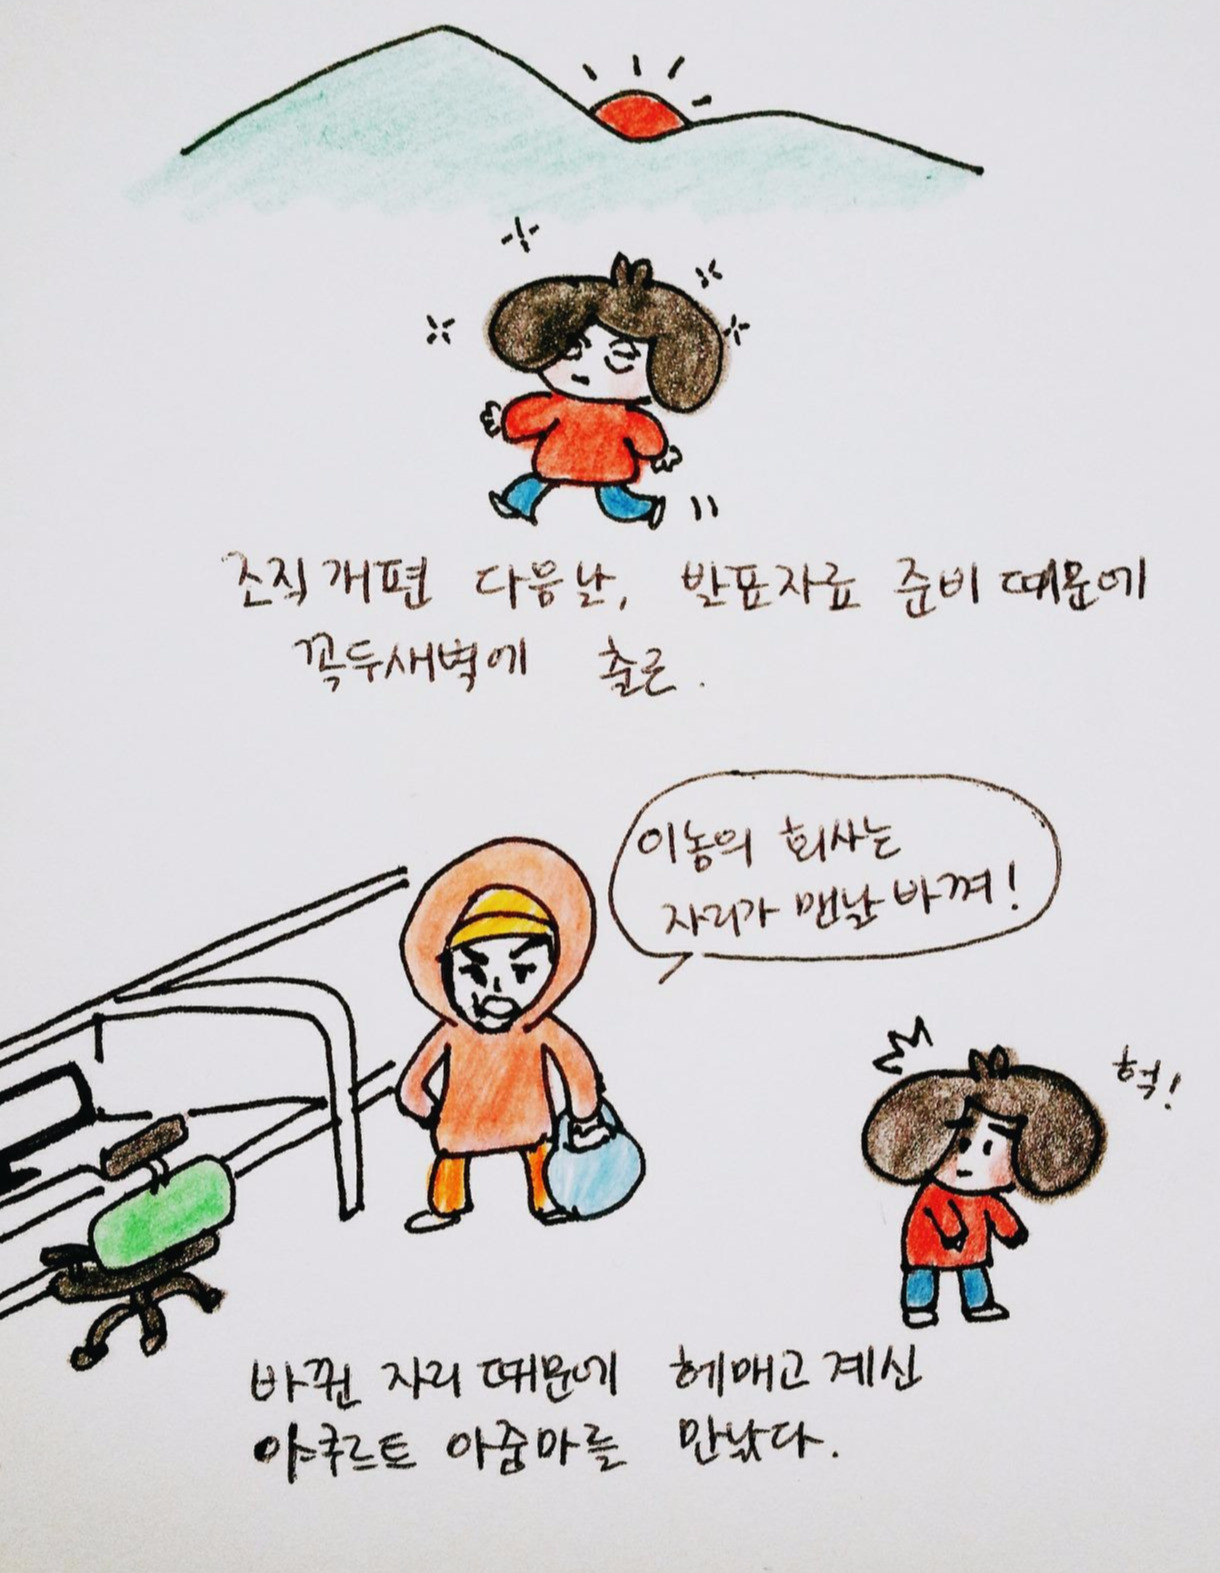 조직개편 다음날, 발표자료 준비 때문에
꼭두새벽에 출근.
이놈의 회사는
자리가 맨날 바껴!
헉!
바뀐 자리 때문에 헤매고 계신
야쿠르트 아줌마를 만났다.